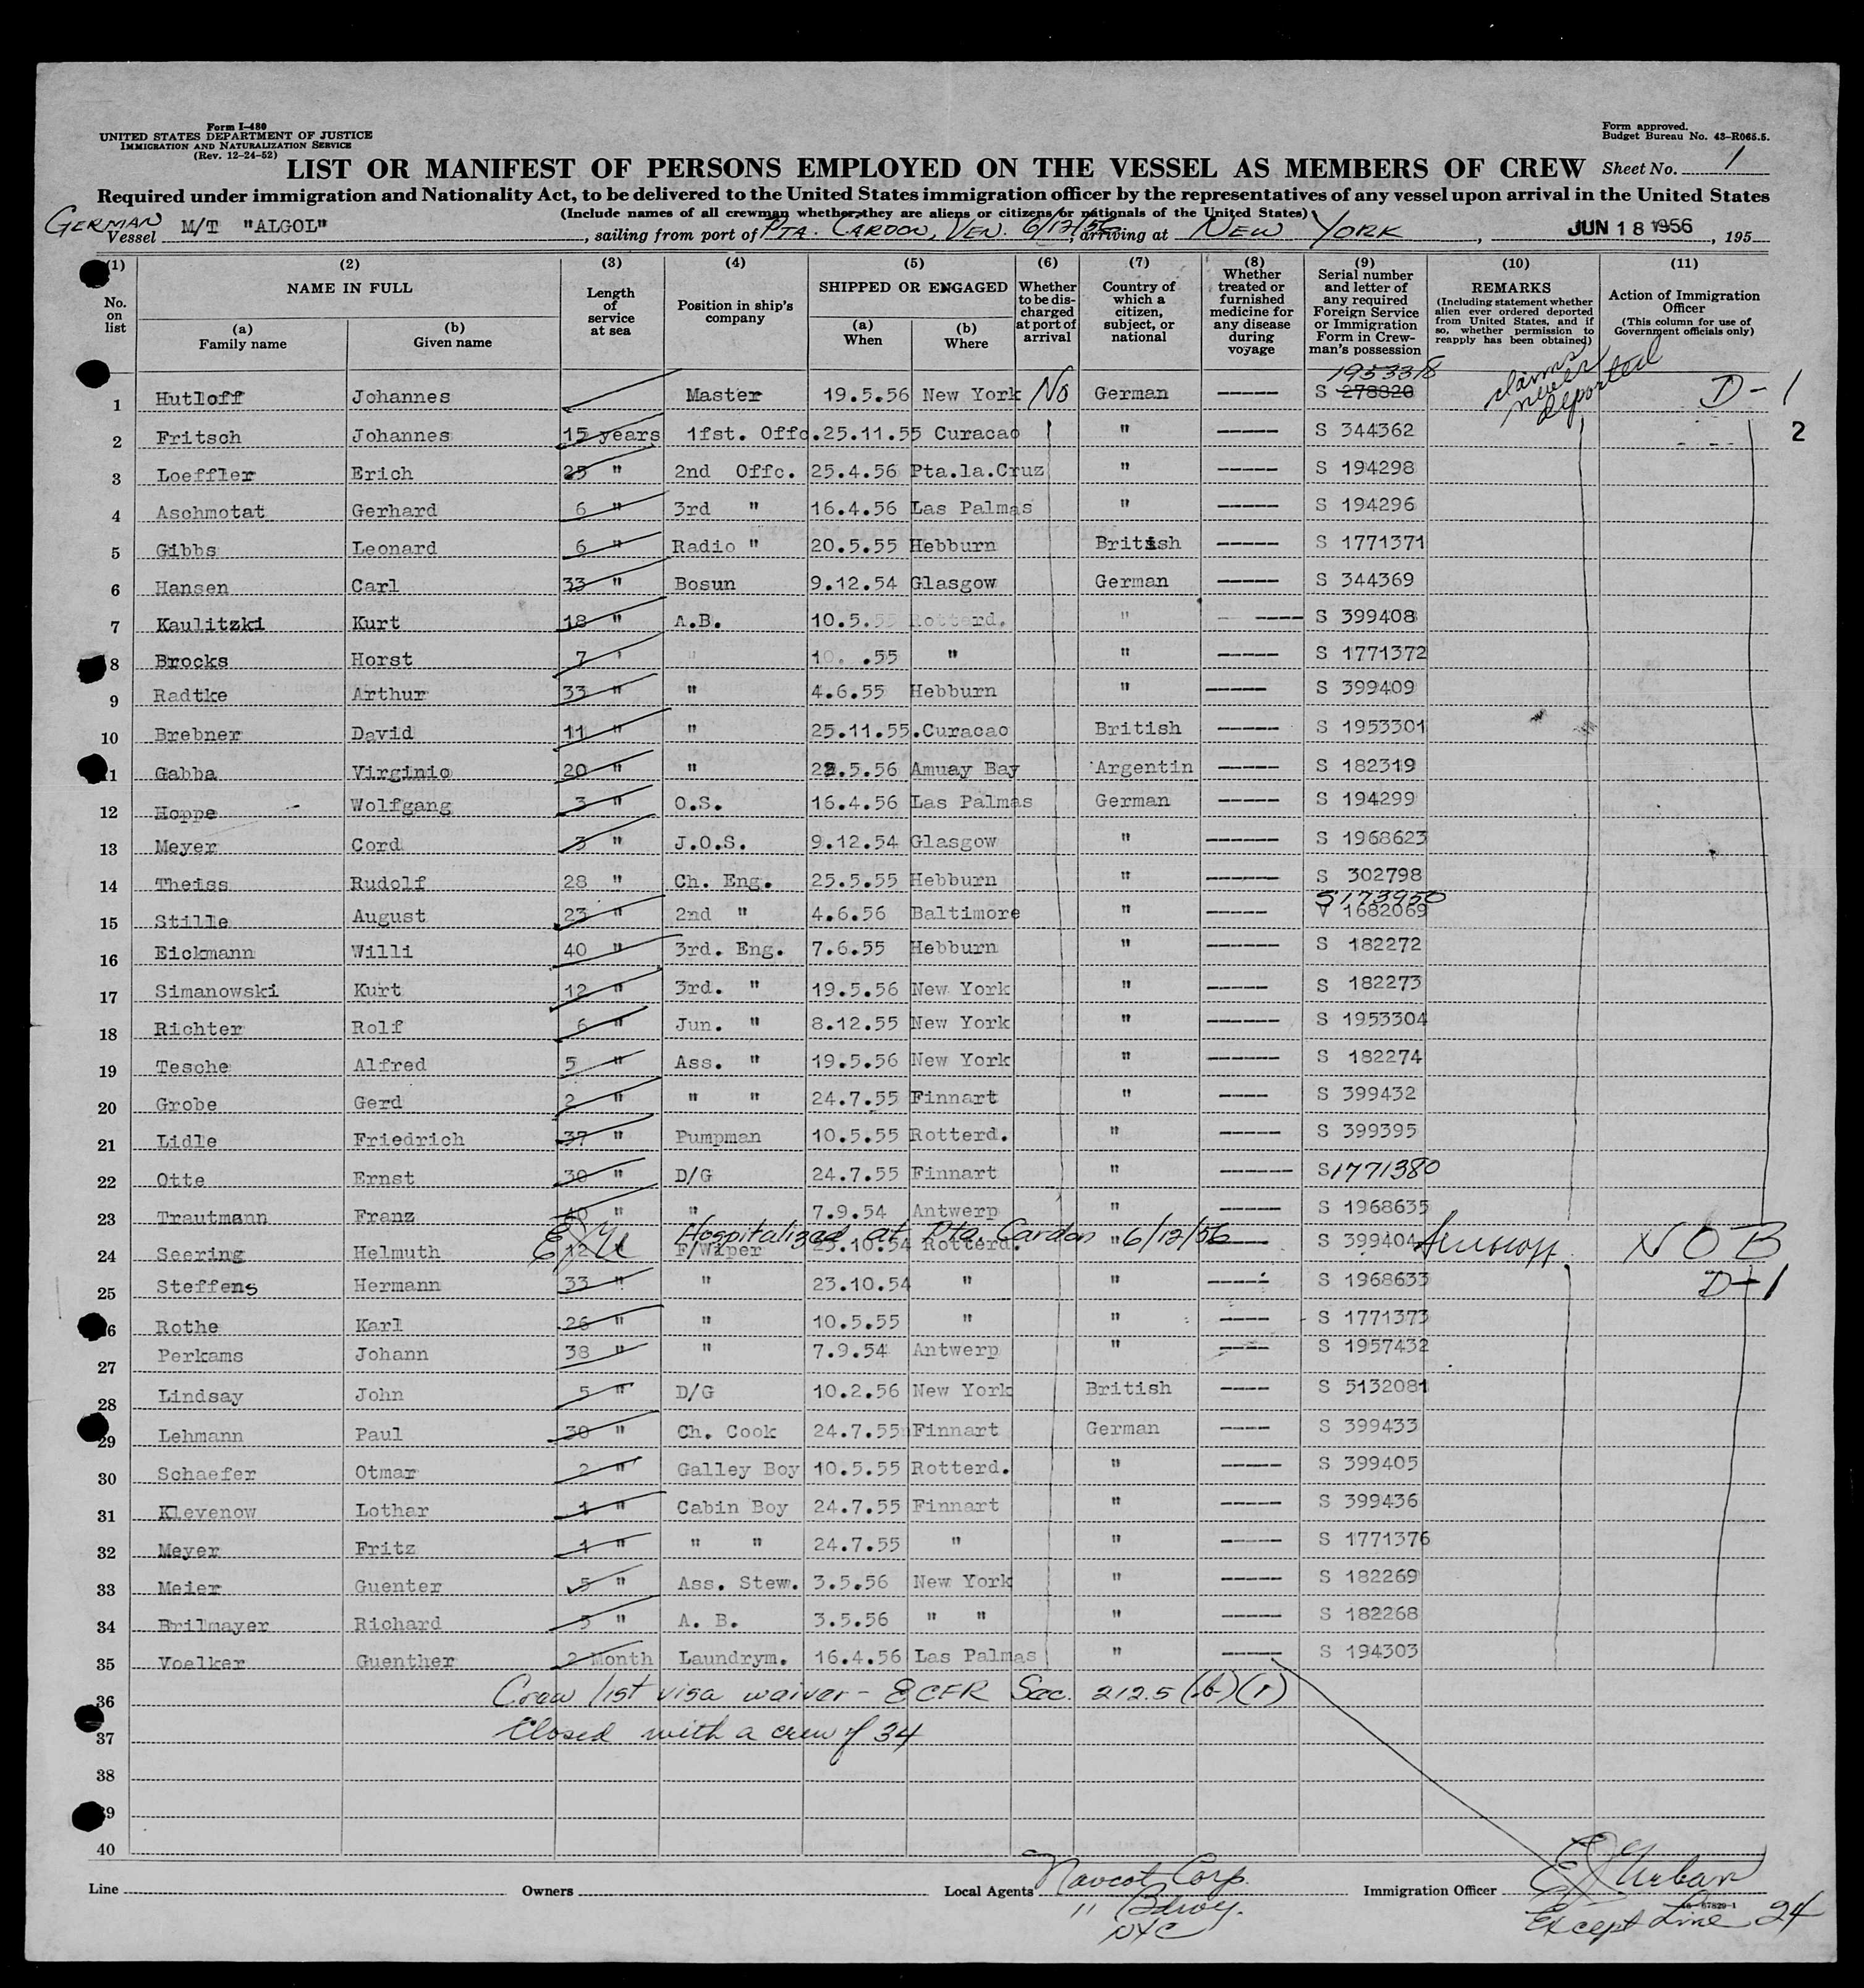 Form I-480
UNITED STATES DEPARTMENT OF JUSTICE
IMMIGRATION AND NATURALIZATION SERVICE
(Rev. 12-24-52)
Form approved.
Budget Bureau No. 43-R065.5.
LIST OR MANIFEST OF PERSONS EMPLOYED ON THE VESSEL AS MEMBERS OF CREW
Sheet No. 1
Required under immigration and Nationality Act, to be delivered to the United States immigration officer by the representatives of any vessel upon arrival in the United States
(Include names of all crewman whether they are aliens or citizens or nationals of the United States)
GERMAN Vessel M/T "ALGOL", sailing from port of PTA. CARDON, VEN. 6/12/56, arriving at NEW YORK, JUN 18 1956, 195
(1) (2) (3) (4) (5) (6) (7) (8) (9) (10) (11)
No. on list
NAME IN FULL
(a) Family name
(b) Given name
Length of service at sea
Position in ship's company
SHIPPED OR ENGAGED
(a) When
(b) Where
Whether to be discharged at port of arrival
Country of which a citizen, subject, or national
Whether treated or furnished medicine for any disease during voyage
Serial number and letter of any required Foreign Service or Immigration Form in Crewman's possession
REMARKS
(Including statement whether alien ever ordered deported from United States, and if so, whether permission to reapply has been obtained)
Action of Immigration Officer
(This column for use of Government officials only)
1953318
claims never deported
1 Hutloff Johannes Master 19.5.56 New York No German ----- S 278820 D-1
2 Fritsch Johannes 15 years 1fst. Offc. 25.11.55 Curacao " ----- S 344362 2
3 Loeffler Erich 25 " 2nd Offc. 25.4.56 Pta.la.Cruz " ----- S 194298
4 Aschmotat Gerhard 6 " 3rd " 16.4.56 Las Palmas " ----- S 194296
5 Gibbs Leonard 6 " Radio " 20.5.55 Hebburn British ----- S 1771371
6 Hansen Carl 33 " Bosun 9.12.54 Glasgow German ----- S 344369
7 Kaulitzki Kurt 18 " A.B. 10.5.55 Rotterd. " ----- S 399408
8 Brocks Horst 7 " " 10. .55 " " ----- S 1771372
9 Radtke Arthur 33 " " 4.6.55 Hebburn " ----- S 399409
10 Brebner David 11 " " 25.11.55 .Curacao British ----- S 1953301
11 Gabba Virginio 20 " " 22.5.56 Amuay Bay Argentin ----- S 182319
12 Hoppe Wolfgang 3 " O.S. 16.4.56 Las Palmas German ----- S 194299
13 Meyer Cord 3 " J.O.S. 9.12.54 Glasgow " ----- S 1968623
14 Theiss Rudolf 28 " Ch. Eng. 25.5.55 Hebburn " ----- S 302798
S173950
15 Stille August 23 " 2nd " 4.6.56 Baltimore " ----- V 1682069
16 Eickmann Willi 40 " 3rd. Eng. 7.6.55 Hebburn " ----- S 182272
17 Simanowski Kurt 12 " 3rd. " 19.5.56 New York " ----- S 182273
18 Richter Rolf 6 " Jun. " 8.12.55 New York " ----- S 1953304
19 Tesche Alfred 5 " Ass. " 19.5.56 New York " ----- S 182274
20 Grobe Gerd 2 " " " 24.7.55 Finnart " ----- S 399432
21 Lidle Friedrich 37 " Pumpman 10.5.55 Rotterd. " ----- S 399395
22 Otte Ernst 30 " D/G 24.7.55 Finnart " ----- S1771380
23 Trautmann Franz 40 " " 7.9.54 Antwerp " ----- S 1968635
Hospitalized at Pta. Cardon 6/12/56
24 Seering Helmuth 12 F/Wiper 23.10.54 Rotterd. " S 399404 NOB
25 Steffens Hermann 33 " " 23.10.54 " " ----- S 1968633 D-1
26 Rothe Karl 26 " " 10.5.55 " " ----- S 1771373
27 Perkams Johann 38 " " 7.9.54 Antwerp " ----- S 1957432
28 Lindsay John 5 " D/G 10.2.56 New York British ----- S 5132081
29 Lehmann Paul 30 " Ch. Cook 24.7.55 Finnart German ----- S 399433
30 Schaefer Otmar 2 " Galley Boy 10.5.55 Rotterd. " ----- S 399405
31 Klevenow Lothar 1 " Cabin Boy 24.7.55 Finnart " ----- S 399436
32 Meyer Fritz 1 " " " 24.7.55 " " ----- S 1771376
33 Meier Guenter 5 " Ass. Stew. 3.5.56 New York " ----- S 182269
34 Brilmayer Richard 5 " A. B. 3.5.56 " " " ----- S 182268
35 Voelker Guenther 2 Month Laundrym. 16.4.56 Las Palmas " ----- S 194303
36 Crew list visa waiver - 8 CFR Sec. 212.5 (b)(1)
37 Closed with a crew of 34
38
39
40
Line Owners Local Agents Navcot Corp. Immigration Officer E J Urban
11 Bdwy.
NYC
16-67829-1
Except Line 24